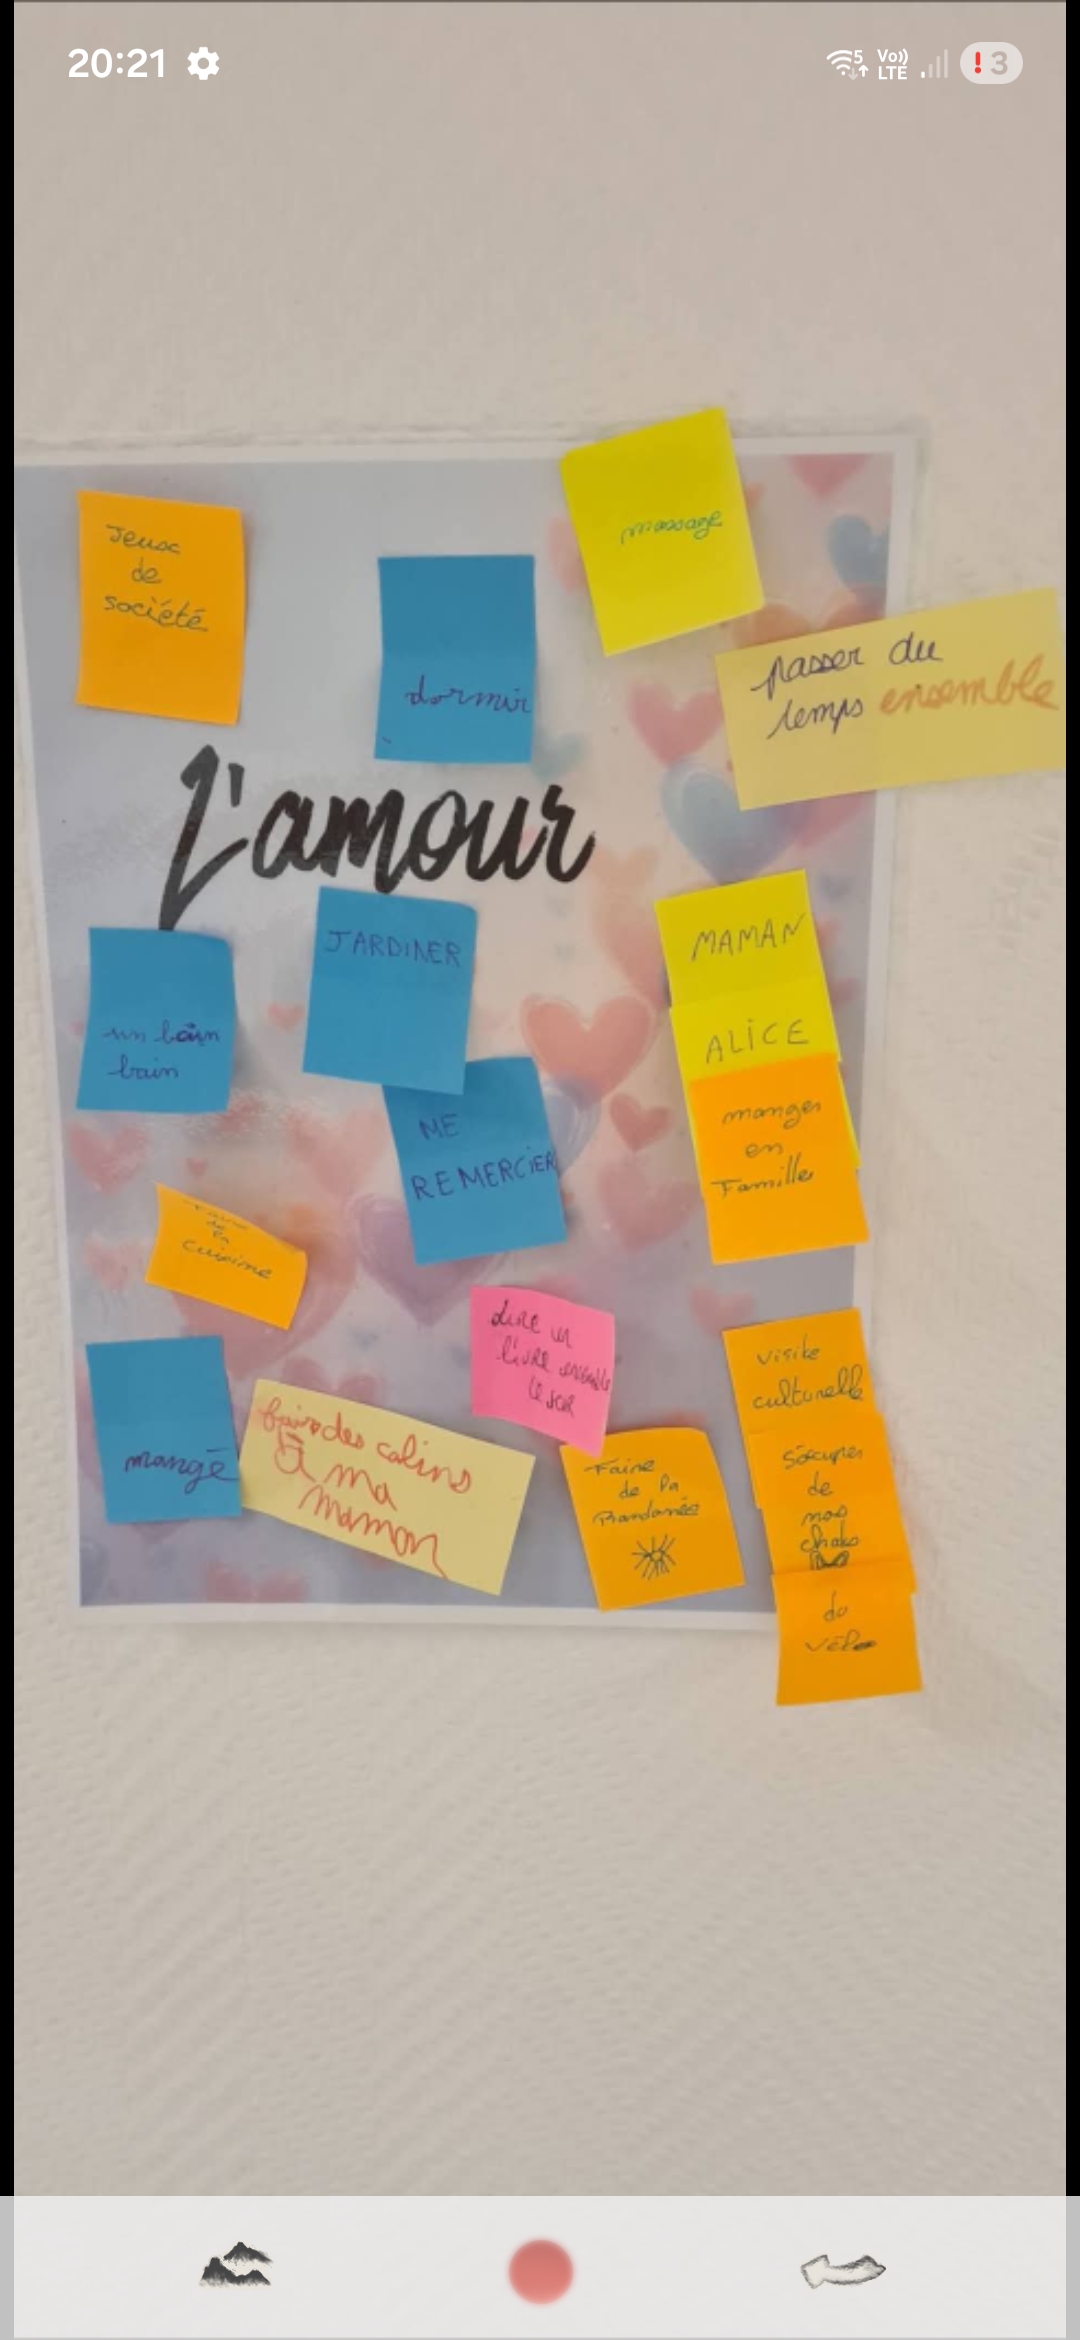 20:21
5
Vo))
LTE
3
Jeux
de
société
dormir
massage
passer du
temps ensemble
L'amour
un bain
bain
JARDINER
ME
REMERCIER
MAMAN
ALICE
manger
en
Famille
de la
cuisine
mangé
des calins
À ma
maman
Lire un
livre ensemble
le soir
Faire
de la
Randonnée
visite
culturelle
s'occuper
de
nos
chats
du
vélo